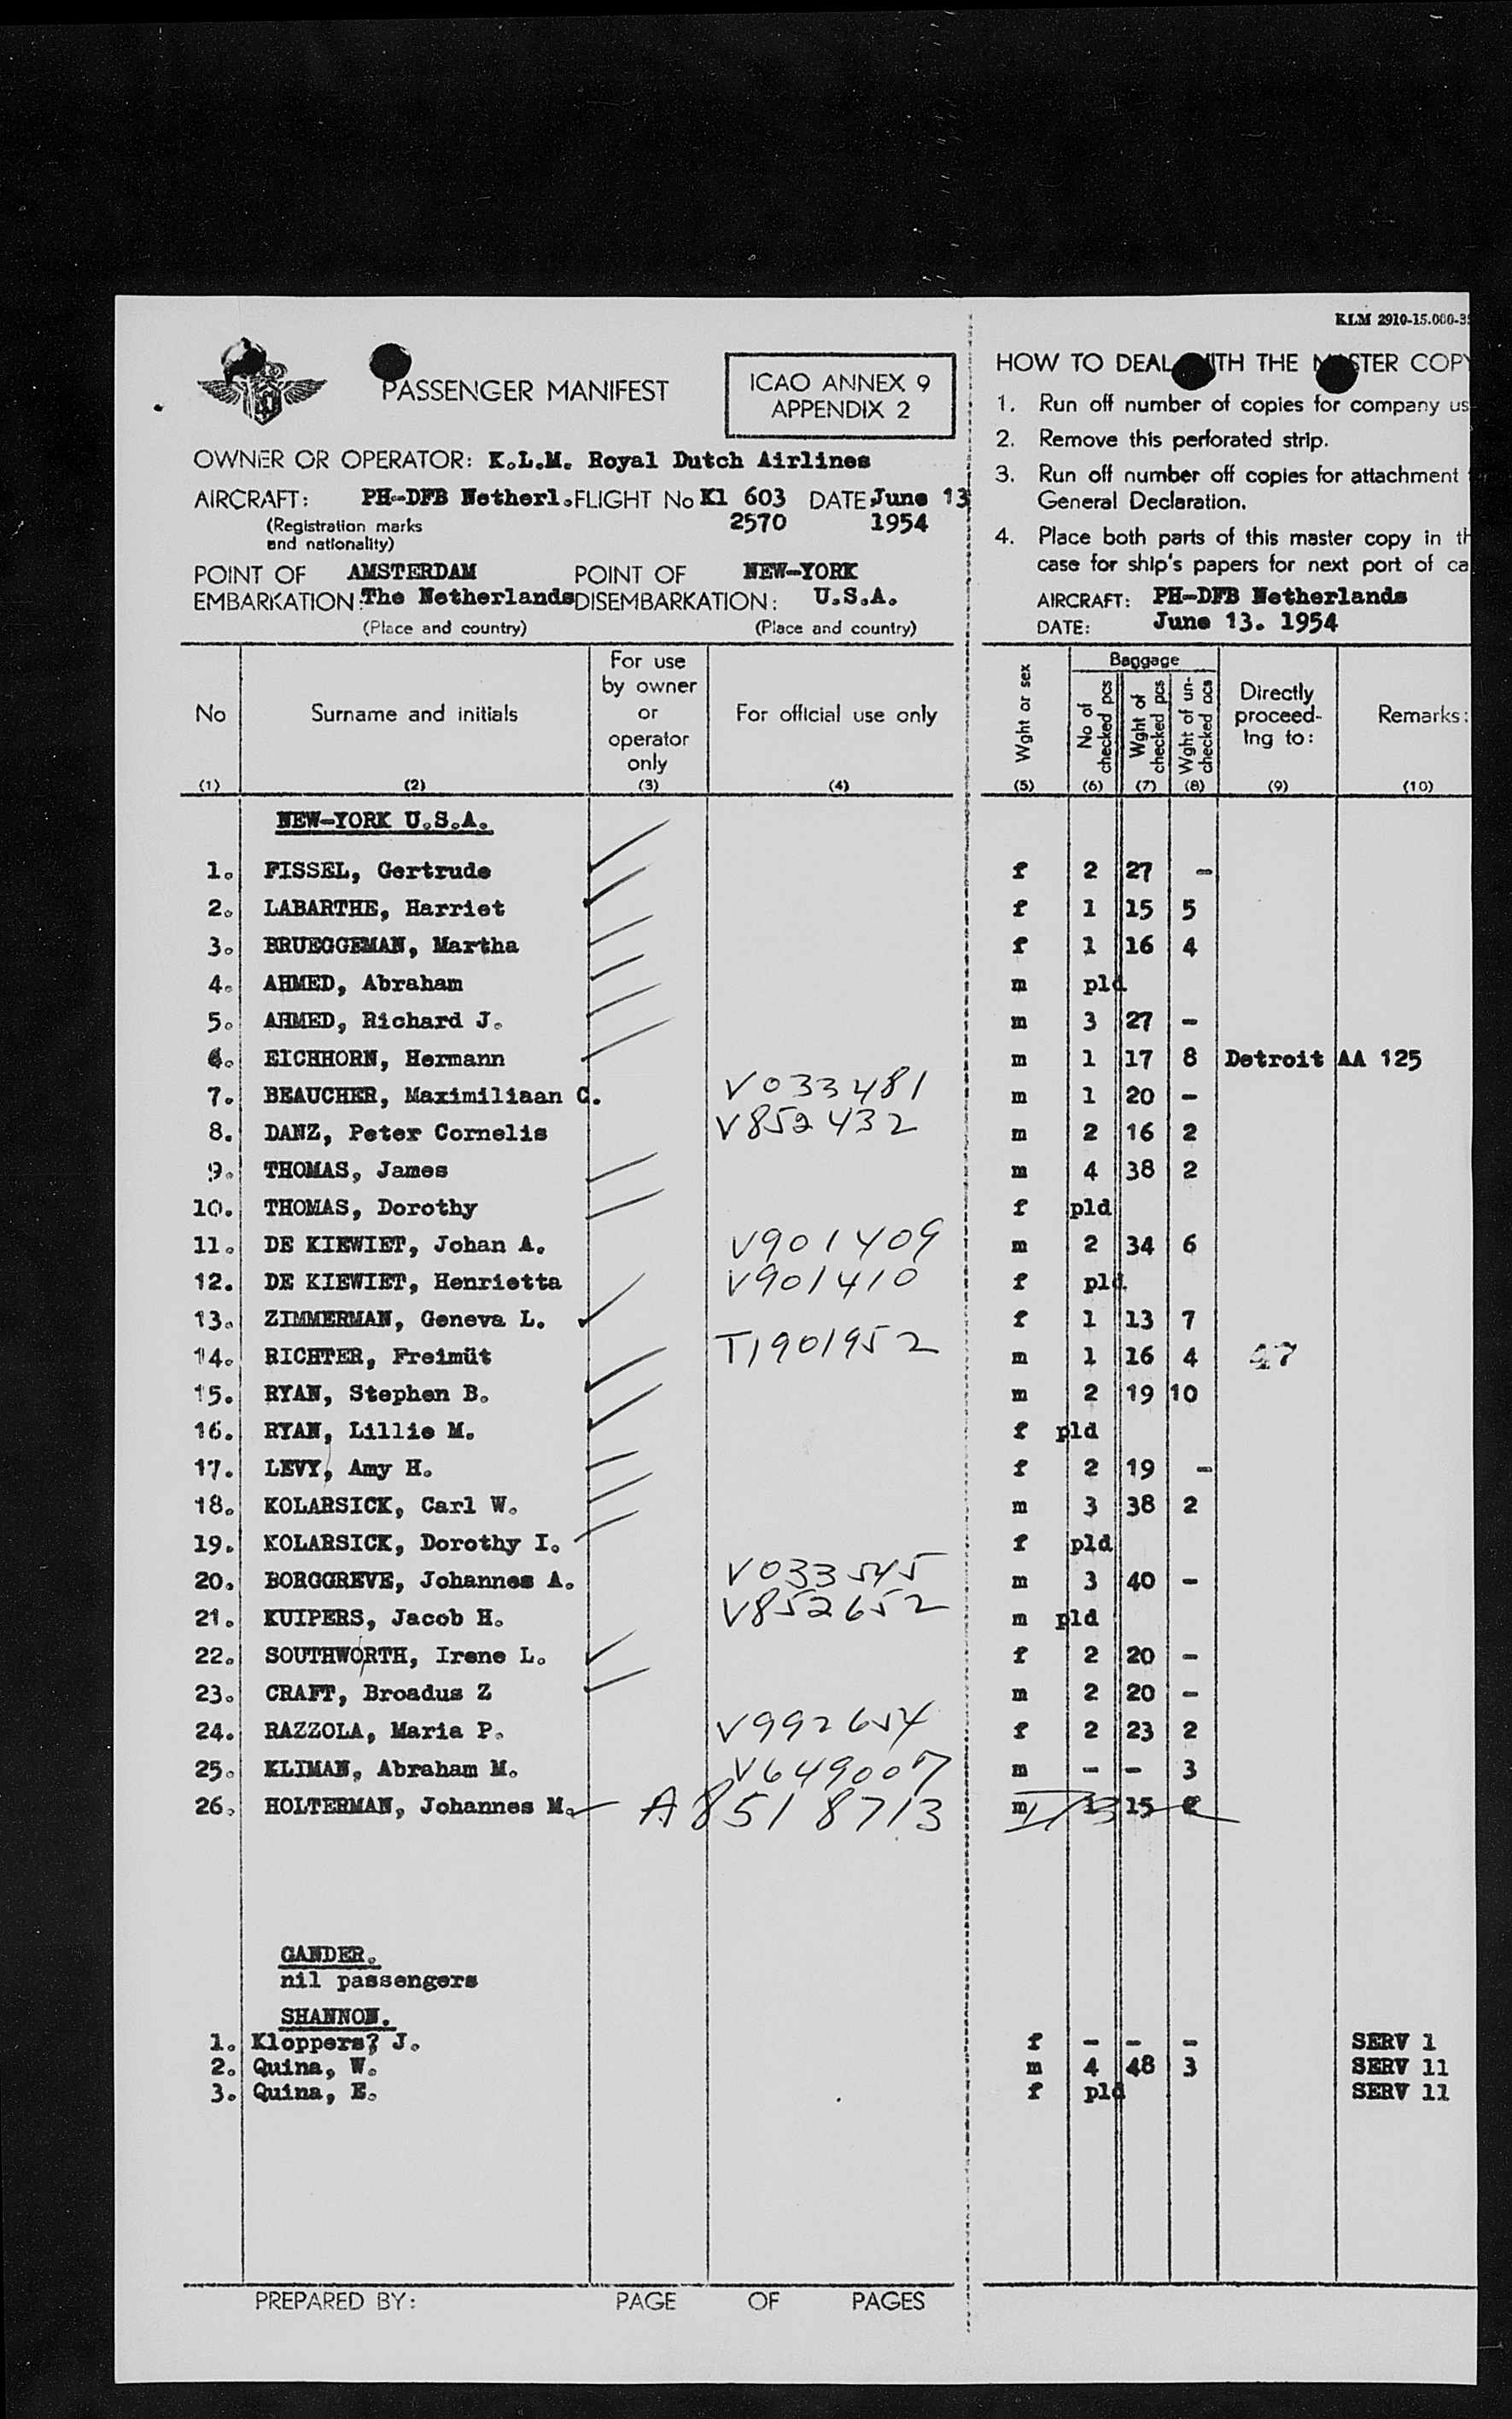 KLM 2910-15.000-3
PASSENGER MANIFEST
ICAO ANNEX 9
APPENDIX 2
OWNER OR OPERATOR: K.L.M. Royal Dutch Airlines
AIRCRAFT: PH-DFB Netherl. FLIGHT No Kl 603 DATE June 13
(Registration marks and nationality) 2570 1954
POINT OF EMBARKATION: AMSTERDAM The Netherlands POINT OF DISEMBARKATION: NEW-YORK U.S.A.
(Place and country) (Place and country)
HOW TO DEAL WITH THE MASTER COPY
1. Run off number of copies for company us
2. Remove this perforated strip.
3. Run off number off copies for attachment
General Declaration.
4. Place both parts of this master copy in th
case for ship's papers for next port of ca
AIRCRAFT: PH-DFB Netherlands
DATE: June 13. 1954
No Surname and initials For use by owner or operator only For official use only Wght or sex Baggage No of checked pcs Wght of checked pcs Wght of un-checked pcs Directly proceed-ing to: Remarks:
(1) (2) (3) (4) (5) (6) (7) (8) (9) (10)
NEW-YORK U.S.A.
1. FISSEL, Gertrude f 2 27 -
2. LABARTHE, Harriet f 1 15 5
3. BRUEGGEMAN, Martha f 1 16 4
4. AHMED, Abraham m pld
5. AHMED, Richard J. m 3 27 -
6. EICHHORN, Hermann m 1 17 8 Detroit AA 125
7. BEAUCHER, Maximiliaan C. V033481 m 1 20 -
8. DANZ, Peter Cornelis V852432 m 2 16 2
9. THOMAS, James m 4 38 2
10. THOMAS, Dorothy f pld
11. DE KIEWIET, Johan A. V901409 m 2 34 6
12. DE KIEWIET, Henrietta V901410 f pld
13. ZIMMERMAN, Geneva L. f 1 13 7
14. RICHTER, Freimüt T1901952 m 1 16 4 47
15. RYAN, Stephen B. m 2 19 10
16. RYAN, Lillie M. f pld
17. LEVY, Amy H. f 2 19 -
18. KOLARSICK, Carl W. m 3 38 2
19. KOLARSICK, Dorothy I. f pld
20. BORGGREVE, Johannes A. V033545 m 3 40 -
21. KUIPERS, Jacob H. V852652 m pld
22. SOUTHWORTH, Irene L. f 2 20 -
23. CRAFT, Broadus Z m 2 20 -
24. RAZZOLA, Maria P. V992654 f 2 23 2
25. KLIMAN, Abraham M. V649007 m - - 3
26. HOLTERMAN, Johannes M. A8518713 m 1 15
GANDER.
nil passengers
SHANNON.
1. Kloppers? J. f - - - SERV 1
2. Quina, W. m 4 48 3 SERV 11
3. Quina, E. f pld SERV 11
PREPARED BY: PAGE OF PAGES